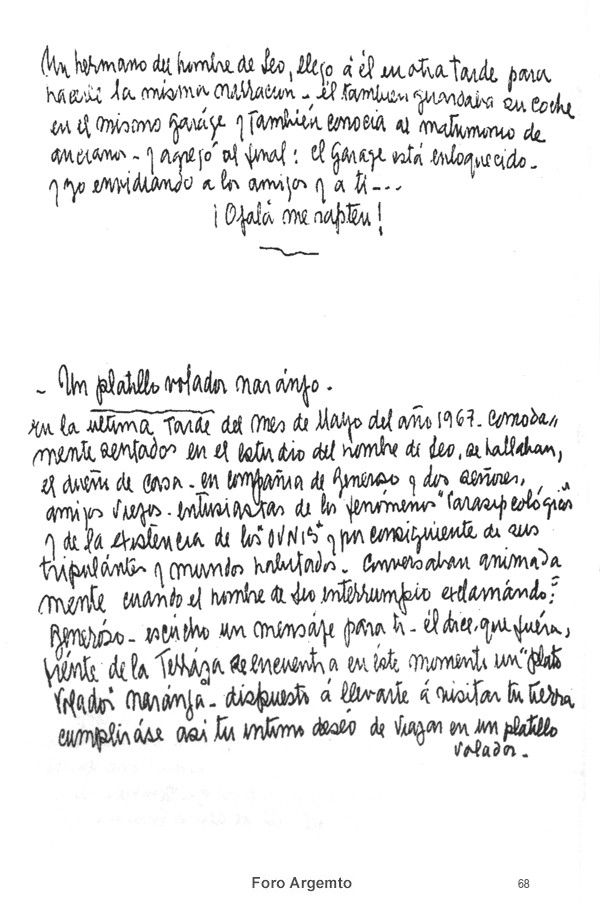 Un hermano del hombre de Leo, llego á él en otra tarde para
hacerle la misma narracion - él tambien guardaba su coche
en el mismo garáge y también conocia al matrimonio de
ancianos - y agregó al final: el Garage está enloquecido -
y yo envidiando a los amigos y a ti ---
¡Ojalá me rapten!
- Un platillo volador naránjo -
En la ultima Tarde del mes de Mayo del año 1967 - comoda,,
mente sentados en el estudio del hombre de Leo, se hallaban,
el dueño de casa - en compañia de Generoso y dos señores,
amigos viejos - entusiastas de los fenómenos "Parasicológicos"
y de la existencia de los "OVNIS" y por consiguiente de sus
tripulántes y mundos habitados - conversaban animada
mente cuando el hombre de Leo interrumpio exclamándo:
Generóso - escucho un mensáje para ti - él dice, que fuéra,
frénte de la Terráza se encuentra en éste momento un "plato
Volador" naránja - dispuesto á llevarte á visitar tu tierra
cumpliráse asi tu intimo deséo de viajar en un platillo
volador -
Foro Argemto 68